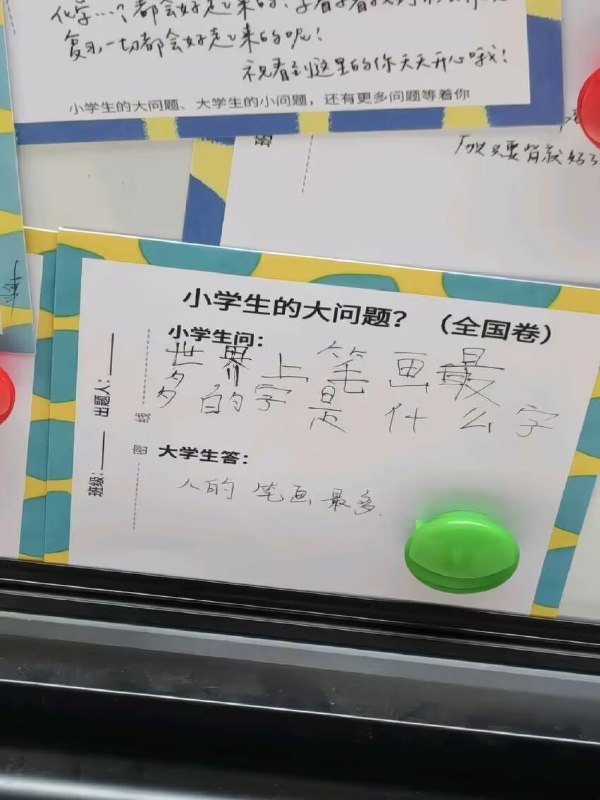 化学…？都会好起来的、
复习一切都会好起来的呢！
祝看到这里的你天天开心哦！
小学生的大问题、大学生的小问题，还有更多问题等着你
小学生的大问题？（全国卷）
小学生问：
世界上笔画最
多的字是什么字
大学生答：
人的笔画最多.
出题人：
班级：
线
密